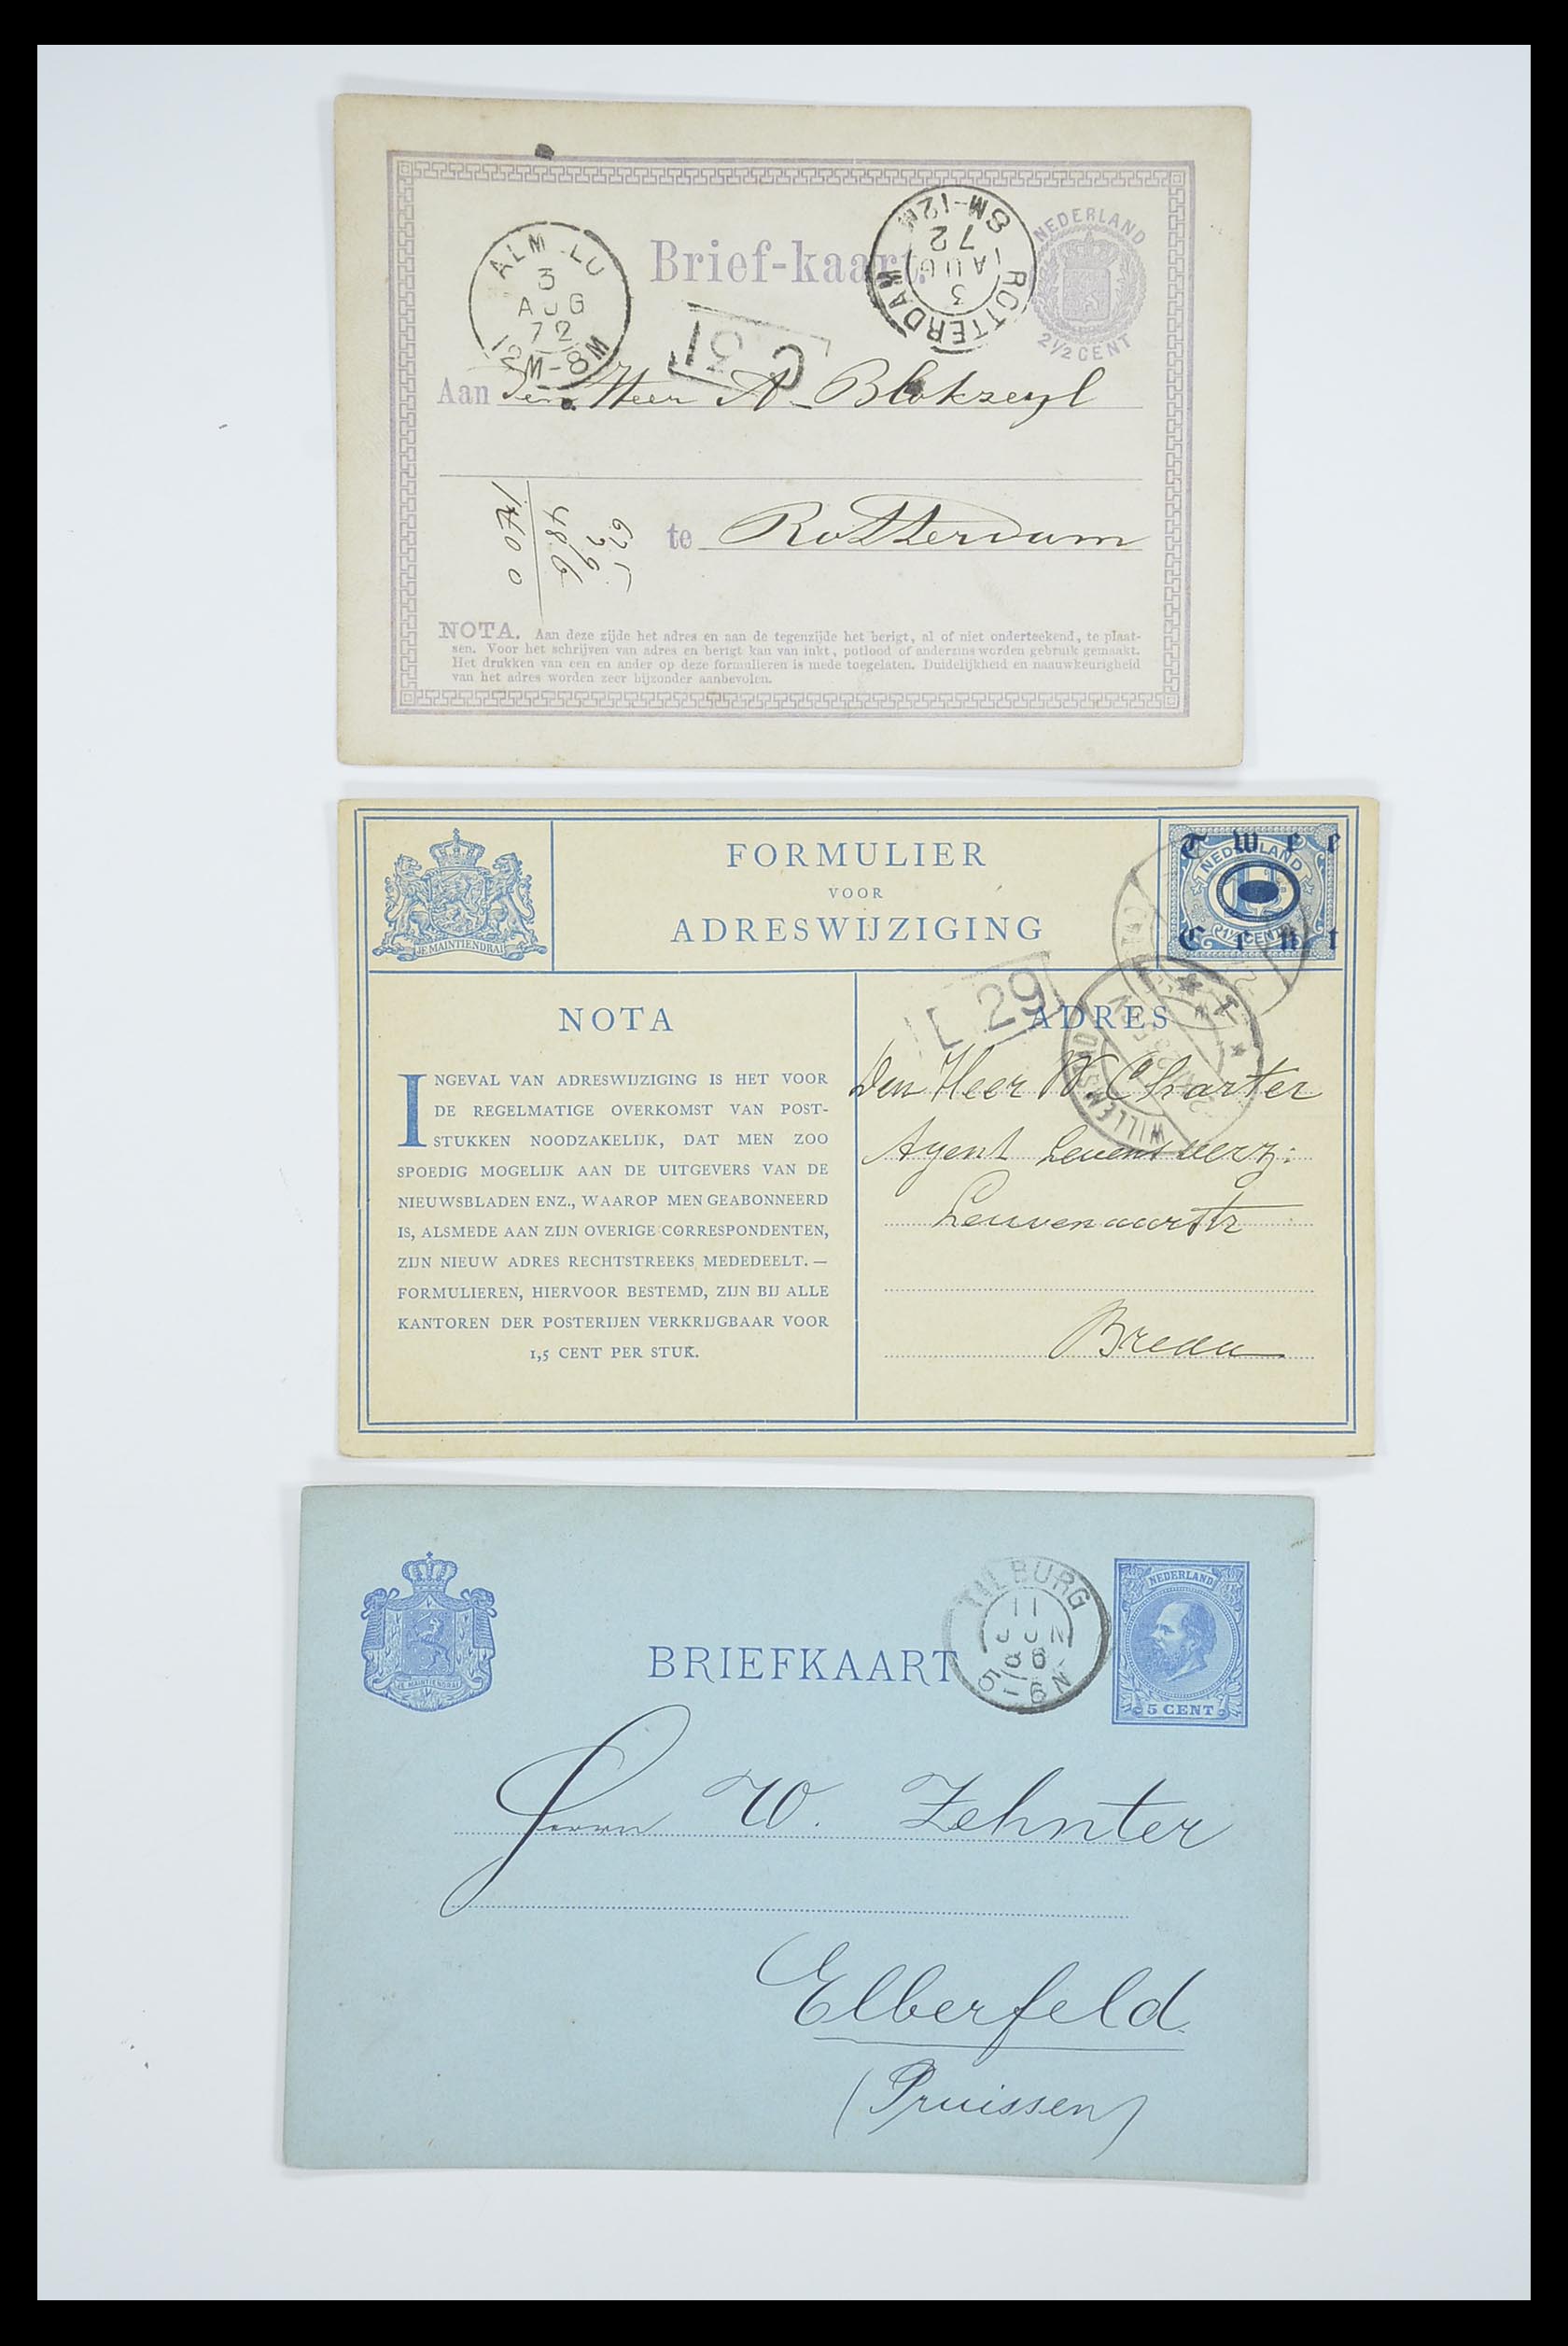 NEDERLAND
2½ CENT
Brief-kaart.
ALM LU
3
AUG
72
12M-8M
ROTTERDAM
3
AUG
72
8M-12M
C 31
Aan Den Heer A. Blokzeyl
te Rotterdam
NOTA. Aan deze zijde het adres en aan de tegenzijde het berigt, al of niet onderteekend, te plaat-
sen. Voor het schrijven van adres en berigt kan van inkt, potlood of anderzins worden gebruik gemaakt.
Het drukken van een en ander op deze formulieren is mede toegelaten. Duidelijkheid en naauwkeurigheid
van het adres worden zeer bijzonder aanbevolen.
JE MAINTIENDRAI
FORMULIER
VOOR
ADRESWIJZIGING
Twee
NEDERLAND
1½ CENT
Cent
L 29
WILLEMSTAD
NOTA
INGEVAL VAN ADRESWIJZIGING IS HET VOOR
DE REGELMATIGE OVERKOMST VAN POST-
STUKKEN NOODZAKELIJK, DAT MEN ZOO
SPOEDIG MOGELIJK AAN DE UITGEVERS VAN DE
NIEUWSBLADEN ENZ., WAAROP MEN GEABONNEERD
IS, ALSMEDE AAN ZIJN OVERIGE CORRESPONDENTEN,
ZIJN NIEUW ADRES RECHTSTREEKS MEDEDEELT. —
FORMULIEREN, HIERVOOR BESTEMD, ZIJN BIJ ALLE
KANTOREN DER POSTERIJEN VERKRIJGBAAR VOOR
1,5 CENT PER STUK.
ADRES
Den Heer W. Charter
Agent Levensverz:
Leuvenaarstr
Breda
JE MAINTIENDRAI
BRIEFKAART
TILBURG
11
JUN
86
5-6N
NEDERLAND
5 CENT
Herrn W. Zehnter
Elberfeld
(Pruissen)